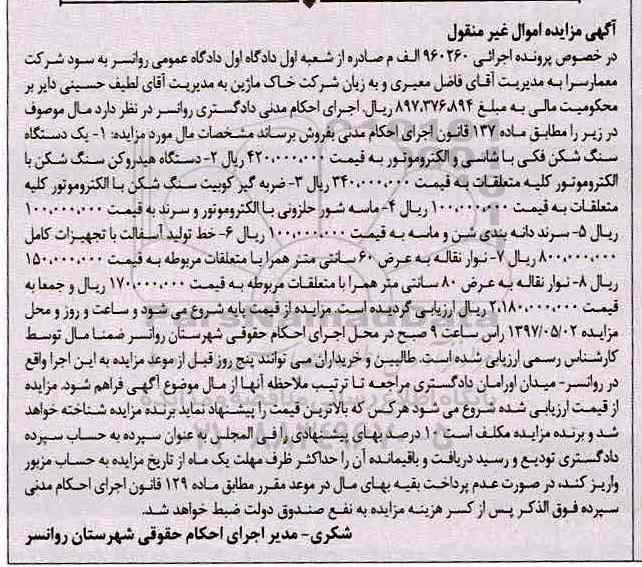 آگهی مزایده اموال غیر منقول
در خصوص پرونده اجرائی ۹۶۰۲۶۰ الف م صادره از شعبه اول دادگاه اول دادگاه عمومی روانسر به سود شرکت
معمارسرا به مدیریت آقای فاضل معیری و به زیان شرکت خاک ماژین به مدیریت آقای لطیف حسینی دایر بر
محکومیت مالی به مبلغ ۸۹۷،۳۷۶،۸۹۴ ریال، اجرای احکام مدنی دادگستری روانسر در نظر دارد مال موصوف
در زیر را مطابق ماده ۱۳۷ قانون اجرای احکام مدنی بفروش برساند مشخصات مال مورد مزایده: ۱- یک دستگاه
سنگ شکن فکی با شاسی و الکتروموتور به قیمت ۴۲۰،۰۰۰،۰۰۰ ریال ۲- دستگاه هیدروکن سنگ شکن با
الکتروموتور کلیه متعلقات به قیمت ۳۴۰،۰۰۰،۰۰۰ ریال ۳- ضربه گیر کوبیت سنگ شکن با الکتروموتور کلیه
متعلقات به قیمت ۱۰۰،۰۰۰،۰۰۰ ریال ۴- ماسه شور حلزونی با الکتروموتور و سرند به قیمت ۱۰۰،۰۰۰،۰۰۰
ریال ۵- سرند دانه بندی شن و ماسه به قیمت ۱۰۰،۰۰۰،۰۰۰ ریال ۶- خط تولید آسفالت با تجهیزات کامل
۸۰۰،۰۰۰،۰۰۰ ریال ۷- نوار نقاله به عرض ۶۰ سانتی متر همرا با متعلقات مربوطه به قیمت ۱۵۰،۰۰۰،۰۰۰
ریال ۸- نوار نقاله به عرض ۸۰ سانتی متر همرا با متعلقات مربوطه به قیمت ۱۷۰،۰۰۰،۰۰۰ ریال و جمعا به
قیمت ۲،۱۸۰،۰۰۰،۰۰۰ ریال ارزیابی گردیده است. مزایده از قیمت پایه شروع می شود و ساعت و روز و محل
مزایده ۱۳۹۷/۰۵/۰۲ راس ساعت ۹ صبح در محل اجرای احکام حقوقی شهرستان روانسر ضمنا مال توسط
کارشناس رسمی ارزیابی شده است. طالبین و خریداران می توانند پنج روز قبل از موعد مزایده به این اجرا واقع
در روانسر- میدان اورامان دادگستری مراجعه تا ترتیب ملاحظه آنها از مال موضوع آگهی فراهم شود. مزایده
از قیمت ارزیابی شده شروع می شود هرکس که بالاترین قیمت را پیشنهاد نماید برنده مزایده شناخته خواهد
شد و برنده مزایده مکلف است ۱۰ درصد بهای پیشنهادی را فی المجلس به عنوان سپرده به حساب سپرده
دادگستری تودیع و رسید دریافت و باقیمانده آن را حداکثر ظرف مهلت یک ماه از تاریخ مزایده به حساب مزبور
واریز کند، در صورت عدم پرداخت بقیه بهای مال در موعد مقرر مطابق ماده ۱۲۹ قانون اجرای احکام مدنی
سپرده فوق الذکر پس از کسر هزینه مزایده به نفع صندوق دولت ضبط خواهد شد.
شکری- مدیر اجرای احکام حقوقی شهرستان روانسر